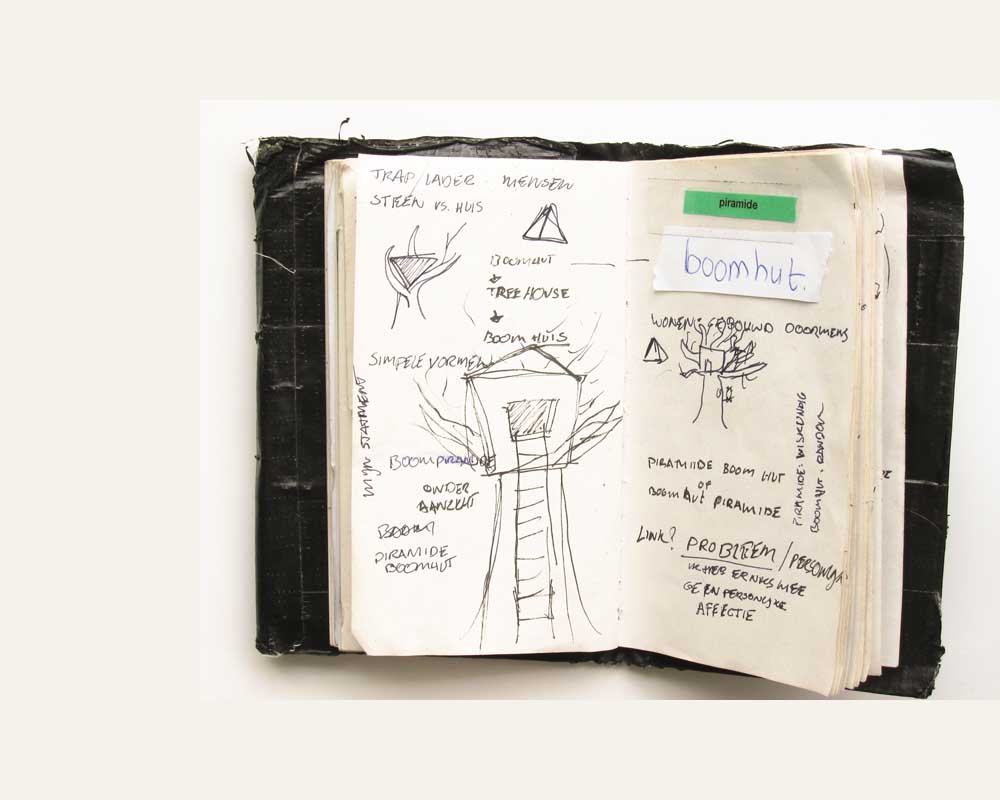 TRAP/LADER - MENSEN
STEEN VS. HUIS
BOOMHUT
TREE HOUSE
BOOM HUIS
SIMPELE VORMEN
MIJN STATMENT
BOOMPIRAMIDE
ONDER
AANZICHT
BOOM
PIRAMIDE
BOOMHUT
piramide
boomhut.
WONEN GEBOUWD DOORMENS
PIRAMIDE: WISKUNDIG
BOOMHUT: RANDOM
PIRAMIDE BOOM HUT
OF
BOOMHUT PIRAMIDE
LINK? PROBLEEM /
IK HEB ER NIKS MEE
GEEN PERSONLIJKE
AFEECTIE